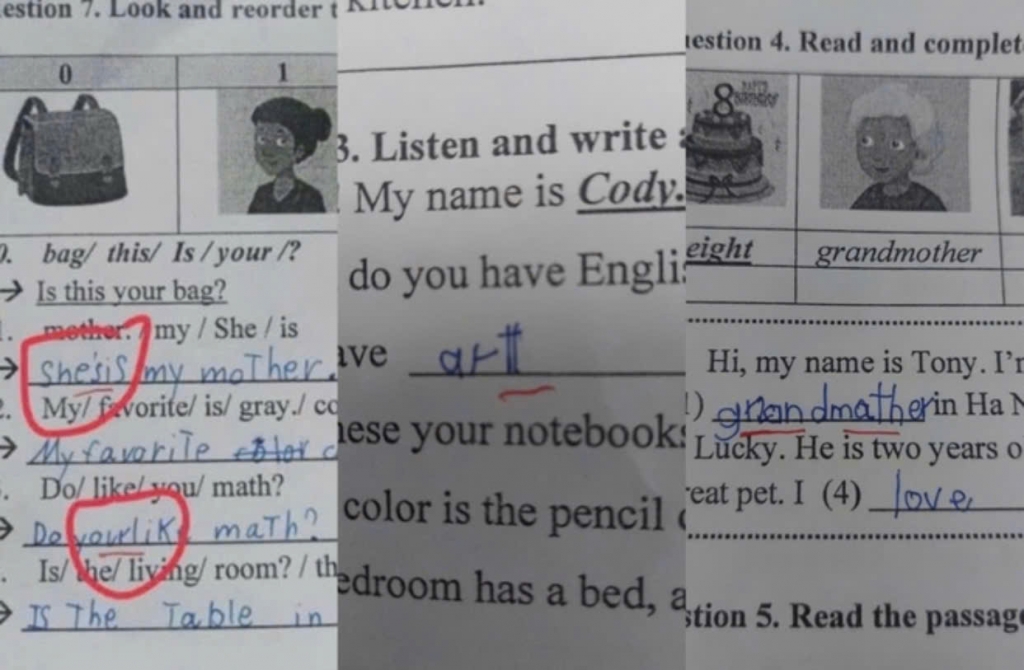 estion 7. Look and reorder t
0 1
0. bag/ this/ Is / your /?
→ Is this your bag?
1. mother. / my / She / is
→ She'sis my moTher.
2. My/ favorite/ is/ gray./ co
→ My favorite color c
3. Do/ like/ you/ math?
→ Do yourlik maTh?
. Is/ the/ living/ room? / th
→ IS The Table in
kitchen.
3. Listen and write a
My name is Cody.
do you have Englis
ave art
nese your notebooks
color is the pencil c
edroom has a bed, a
estion 4. Read and complet
8
eight grandmother
Hi, my name is Tony. I'm
1) grandmather in Ha N
Lucky. He is two years o
reat pet. I (4) love
stion 5. Read the passage